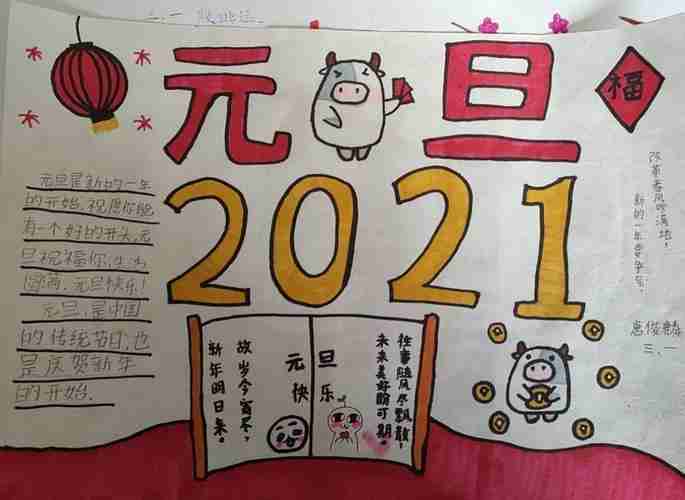 元旦
福
2021
元旦是新的一年
的开始,祝愿你能
有一个好的开头,元
旦祝福你:生活
圆满,元旦快乐!
元旦,是中国
的传统节日;也
是庆贺新年
的开始.
故岁今宵尽,
新年明日来。
元旦
快乐
往事随风尽飘散,
未来美好盼可期。
改革春风吹满地!
新的一年要争气。
三、一